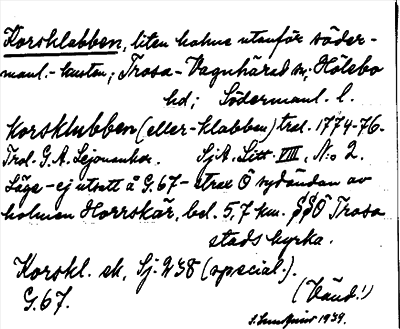 Korsklabben, liten holme utanför söder-
manl.-kusten; Trosa-Vagnhärad sn; Hölebo
hd; Södermanl. l.
Korsklubben (eller -klabben) trol. 1774-76.
Trol. G. A. Lejonankar. SjA. Litt. VIII, No 2.
Läge - ej utsatt å G. 67 - strax Ö sydändan av
holmen Horrskär, bel. 5,7 km. SSÖ Trosa
stads kyrka.
Korskl. sk, Sj. 238 (special.).
G. 67. (Vänd!)
1939.